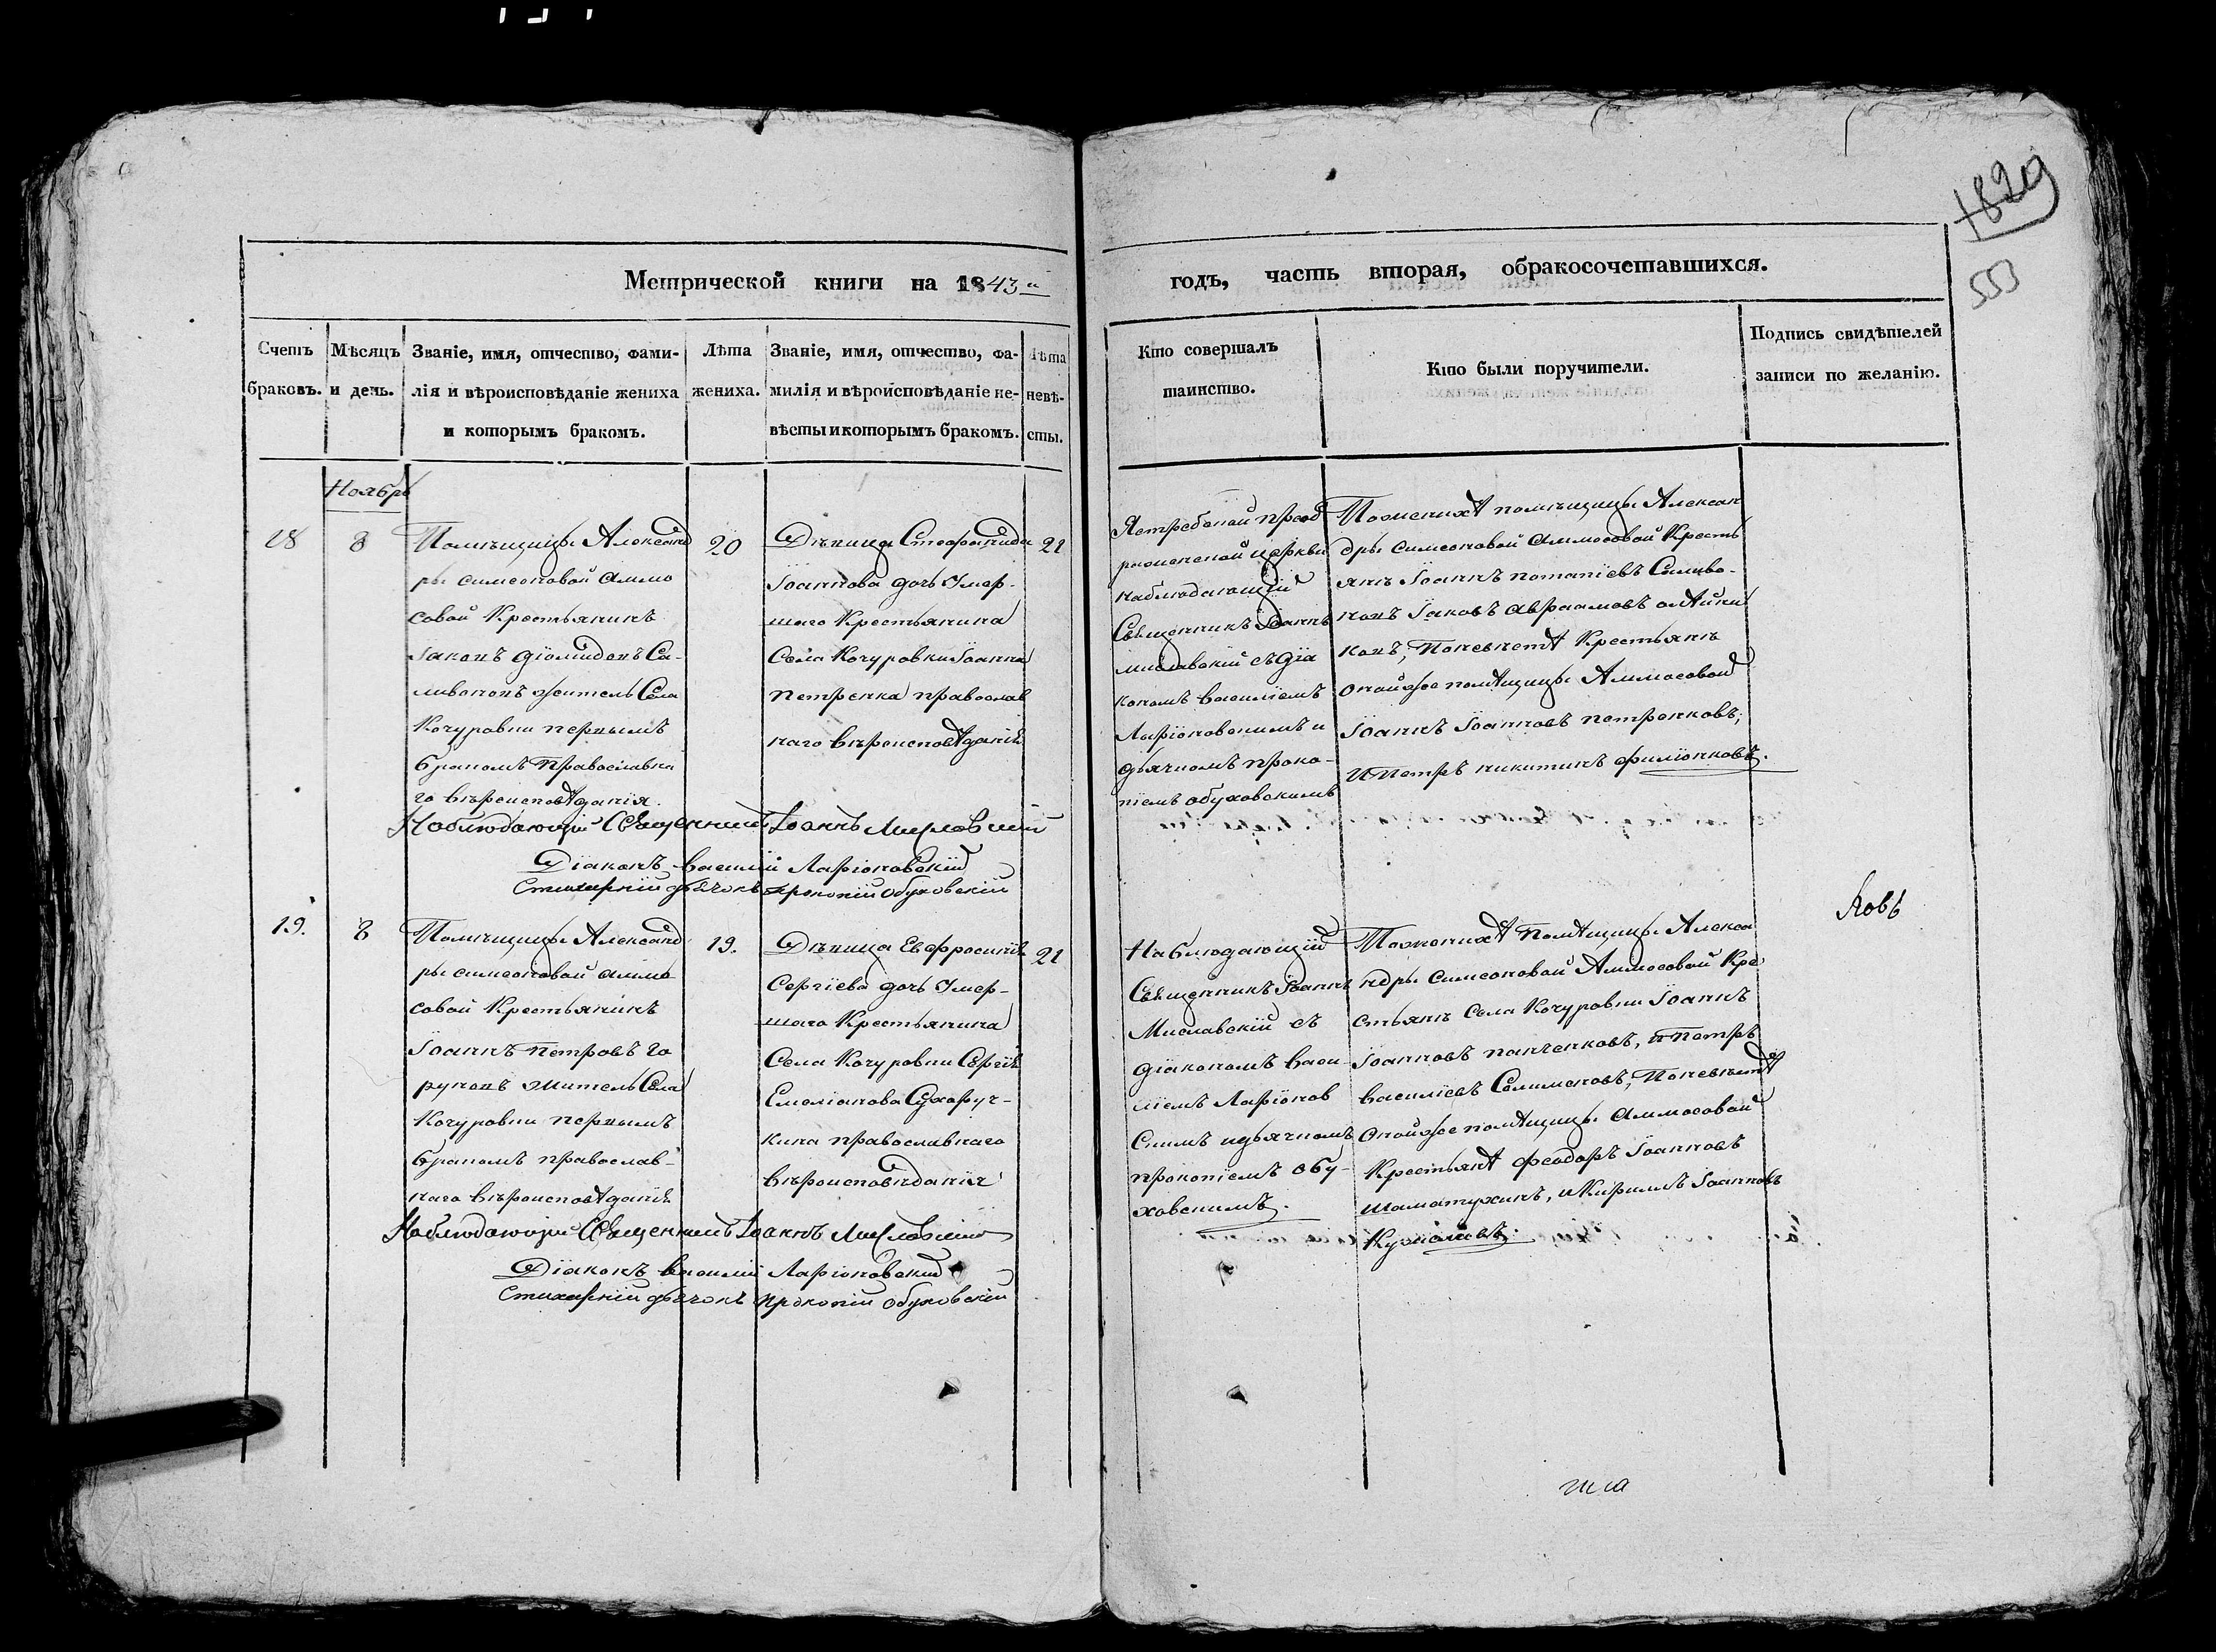 1829
553
Метрической книги на 1843й
годъ, часть вторая, обракосочетавшихся.
Счетъ браковъ.
Мѣсяцъ и день.
Званіе, имя, отчество, фами-
лія и вѣроисповѣданіе жениха
и которымъ бракомъ.
Лѣта
жениха.
Званіе, имя, отчество, фа-
милія и вѣроисповѣданіе не-
вѣсты и которымъ бракомъ.
Лѣта
невѣ-
сты.
Кто совершалъ
таинство.
Кто были поручители.
Подпись свидѣтелей
записи по желанію.
Ноябрь
18
8
Помѣщицы Александ
ры симеоновой аммо
совой Крестьянинъ
Іаковъ діомидовъ Са-
ливоновъ житель Села
Кочуровки первымъ
бракомъ Православна
го вѣроисповѣданія.
20
Дѣвица Стефанида
Іоаннова дочь Умер-
шаго Крестьянина
Села Кочуровки Іоанна
Петренка православ
наго вѣроисповѣданія
21
Ястребской преоб
раженской церкви
наблюдающій
Священникъ Іоаннъ
миславскій съ діа
кономъ василіемъ
Ларіоновскимъ и
дьячкомъ проко-
піемъ обуховскимъ
Поженихѣ помѣщицы Алексан
дры симеоновой аммосовой Кресть
яне Іоаннъ потапіевъ Саливо-
новъ Іаковъ авраамовъ олѣйни
ковъ, Поневѣстѣ Крестьяне
оной же помѣщицы Аммосовой
Іоаннъ Іоанновъ петренковъ,
и Петръ никитинъ филіонковъ.
Наблюдающій Священникъ Іоаннъ Миславскій
Діаконъ василій Ларіоновскій
Стихарній дьячокъ прокопій обуховскій
19.
8
Помѣщицы Александ
ры симеоновой аммо
совой Крестьянинъ
Іоаннъ Петровъ Го
руновъ житель Села
Кочуровки первымъ
бракомъ православ-
наго вѣроисповѣданія
19.
Дѣвица Евфросинія
Сергіева дочь Умер-
шаго Крестьянина
Села Кочуровки Сергія
Емеліанова Сухоруч-
кина православнаго
вѣроисповѣданія
21
Наблюдающій
Священникъ Іоаннъ
Миславскій съ
діакономъ васи-
ліемъ Ларіонов
Скимъ идьячкомъ
прокопіемъ обу-
ховскимъ.
Поженихѣ Помѣщицы Алекса
ндры Симеоновой Аммосовой Кре
стьяне Села Кочуровки Іоаннъ
Іоанновъ панченковъ, и Петръ
василіевъ Солимоновъ, Поневѣстѣ
Оной же помѣщицы аммосовой
Крестьянѣ феодоръ Іоанновъ
шаматухинъ, и Кириллъ Іоанновъ
Наблюдающій Священникъ Іоаннъ Миславскій
Діаконъ василій Ларіоновскій
Стихарній дьячокъ прокопій обуховскій